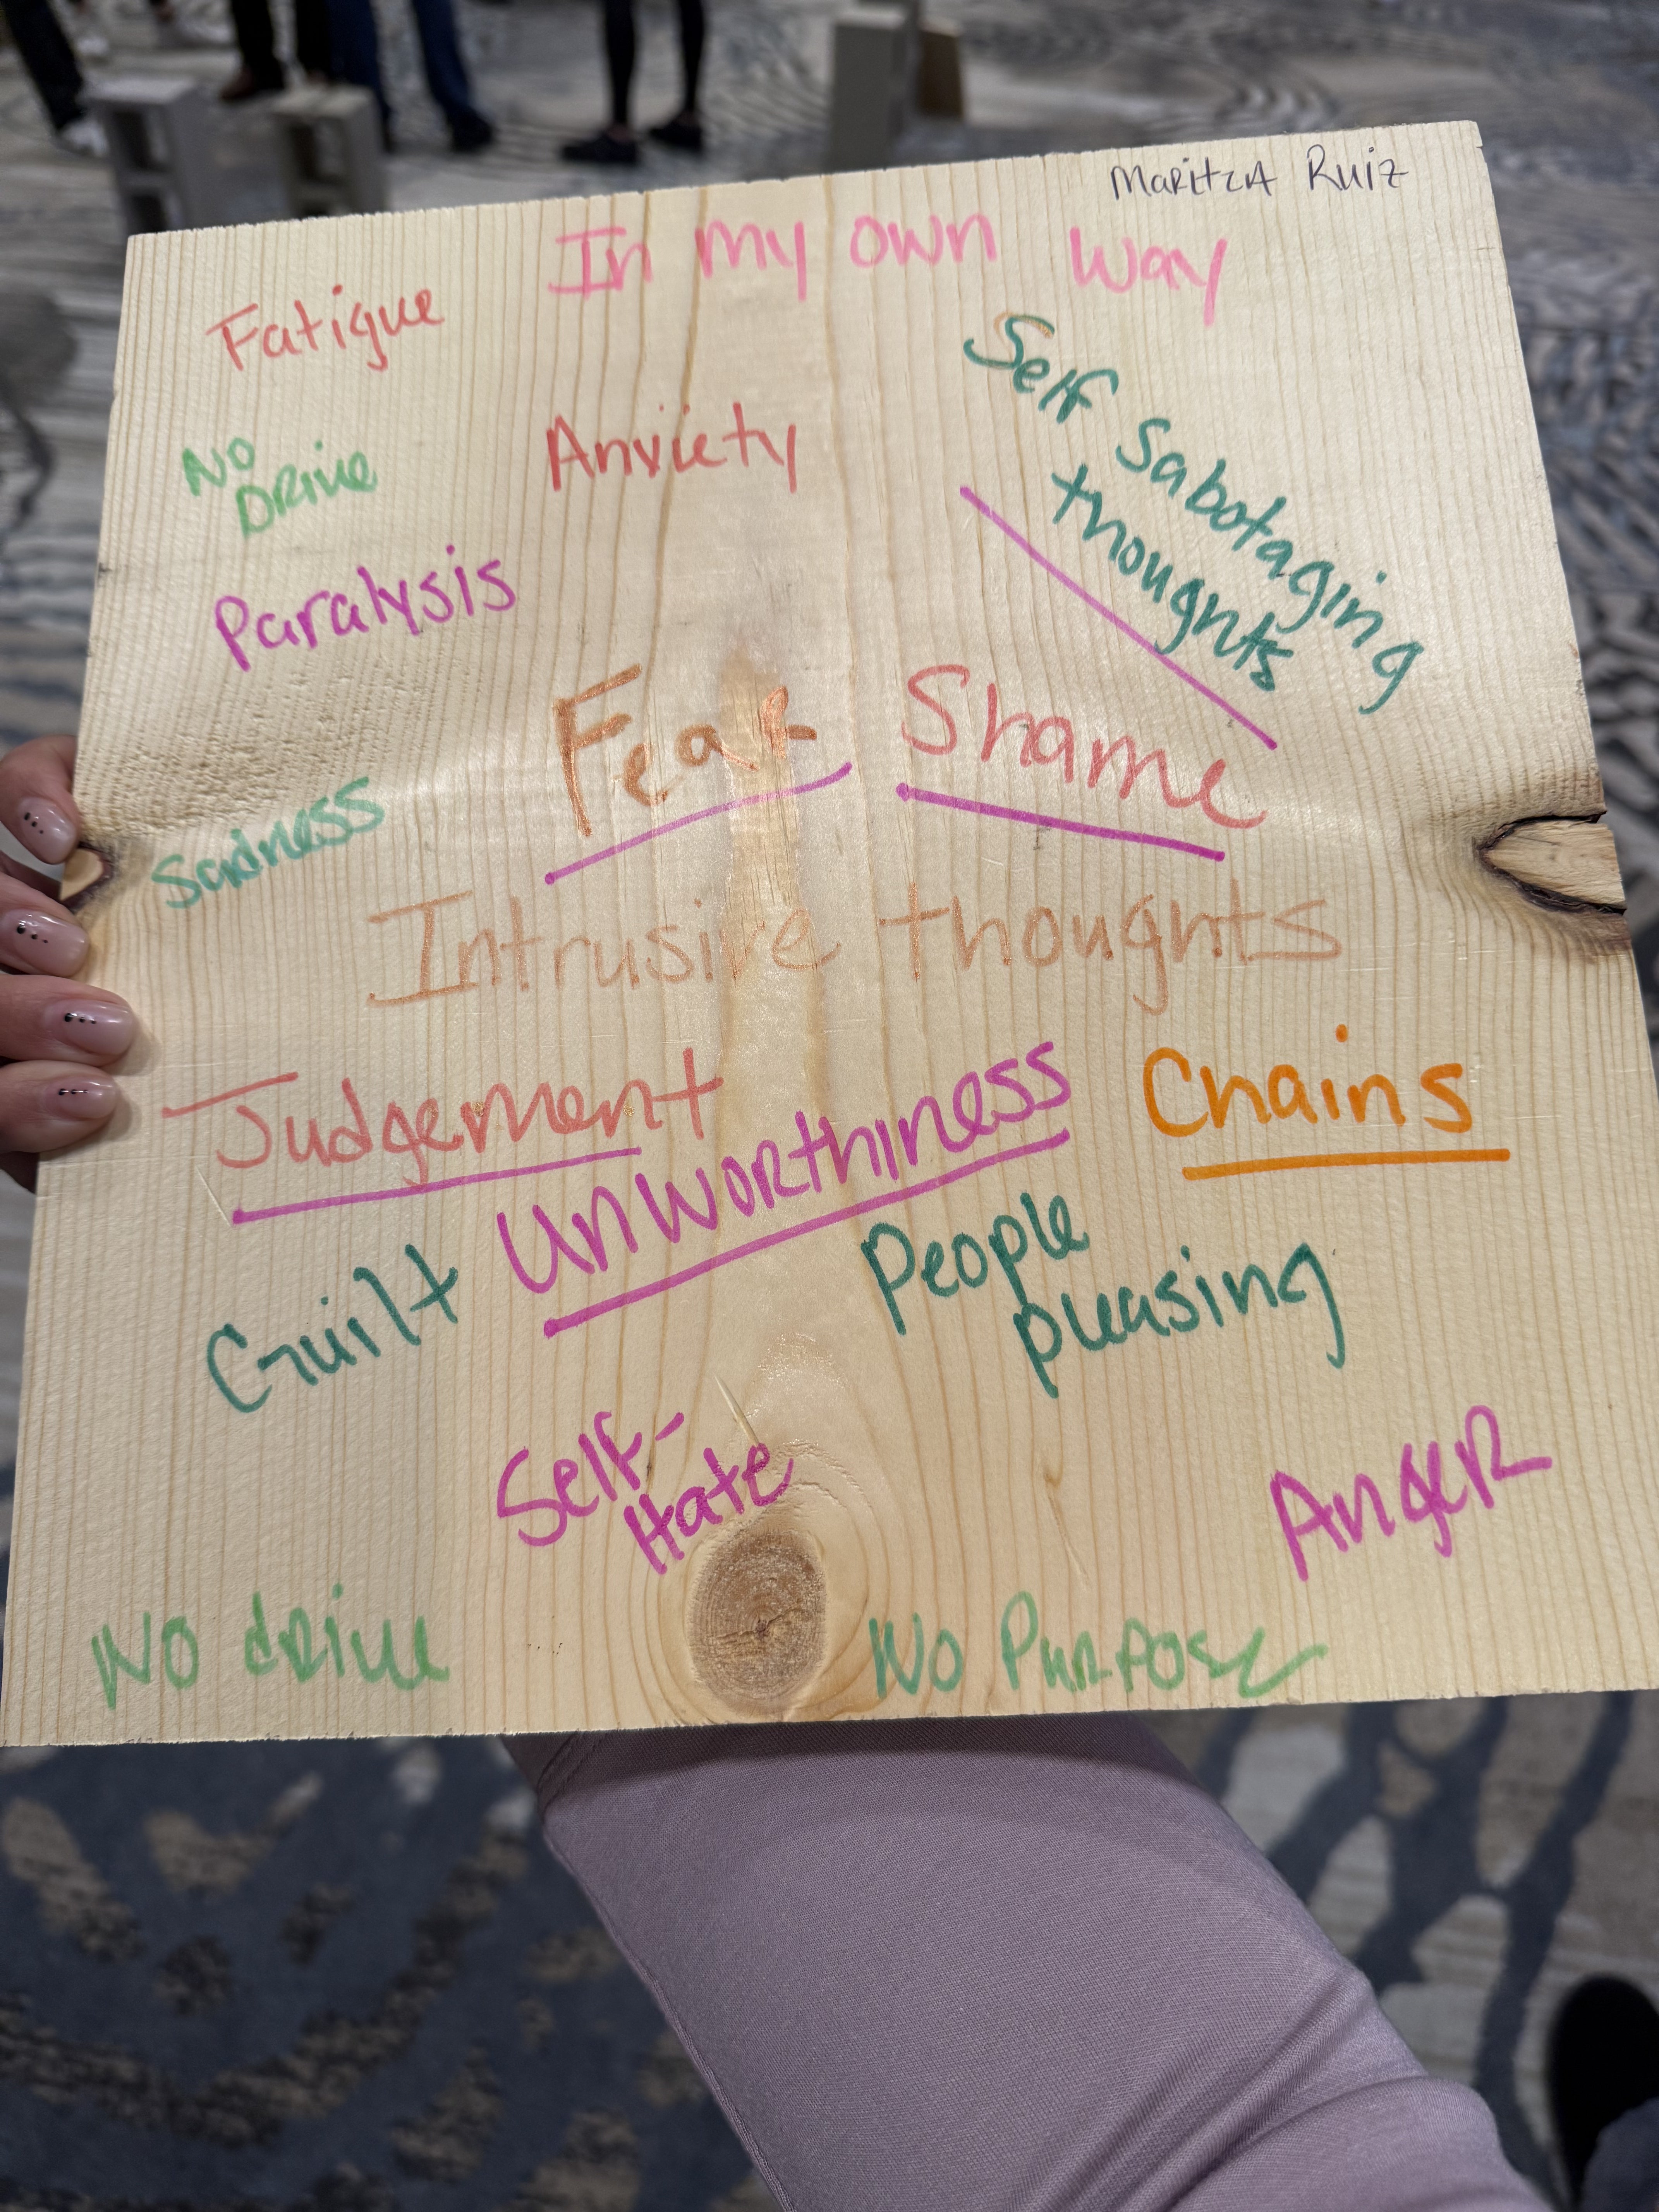 Maritza Ruiz
In my own way
Fatigue
Self Sabotaging
thoughts
Anxiety
No
Drive
Paralysis
Fear
Shame
Sadness
Intrusive thoughts
Judgement
Unworthiness
Chains
Guilt
People
pleasing
Self-
Hate
Anger
No drive
No Purpose